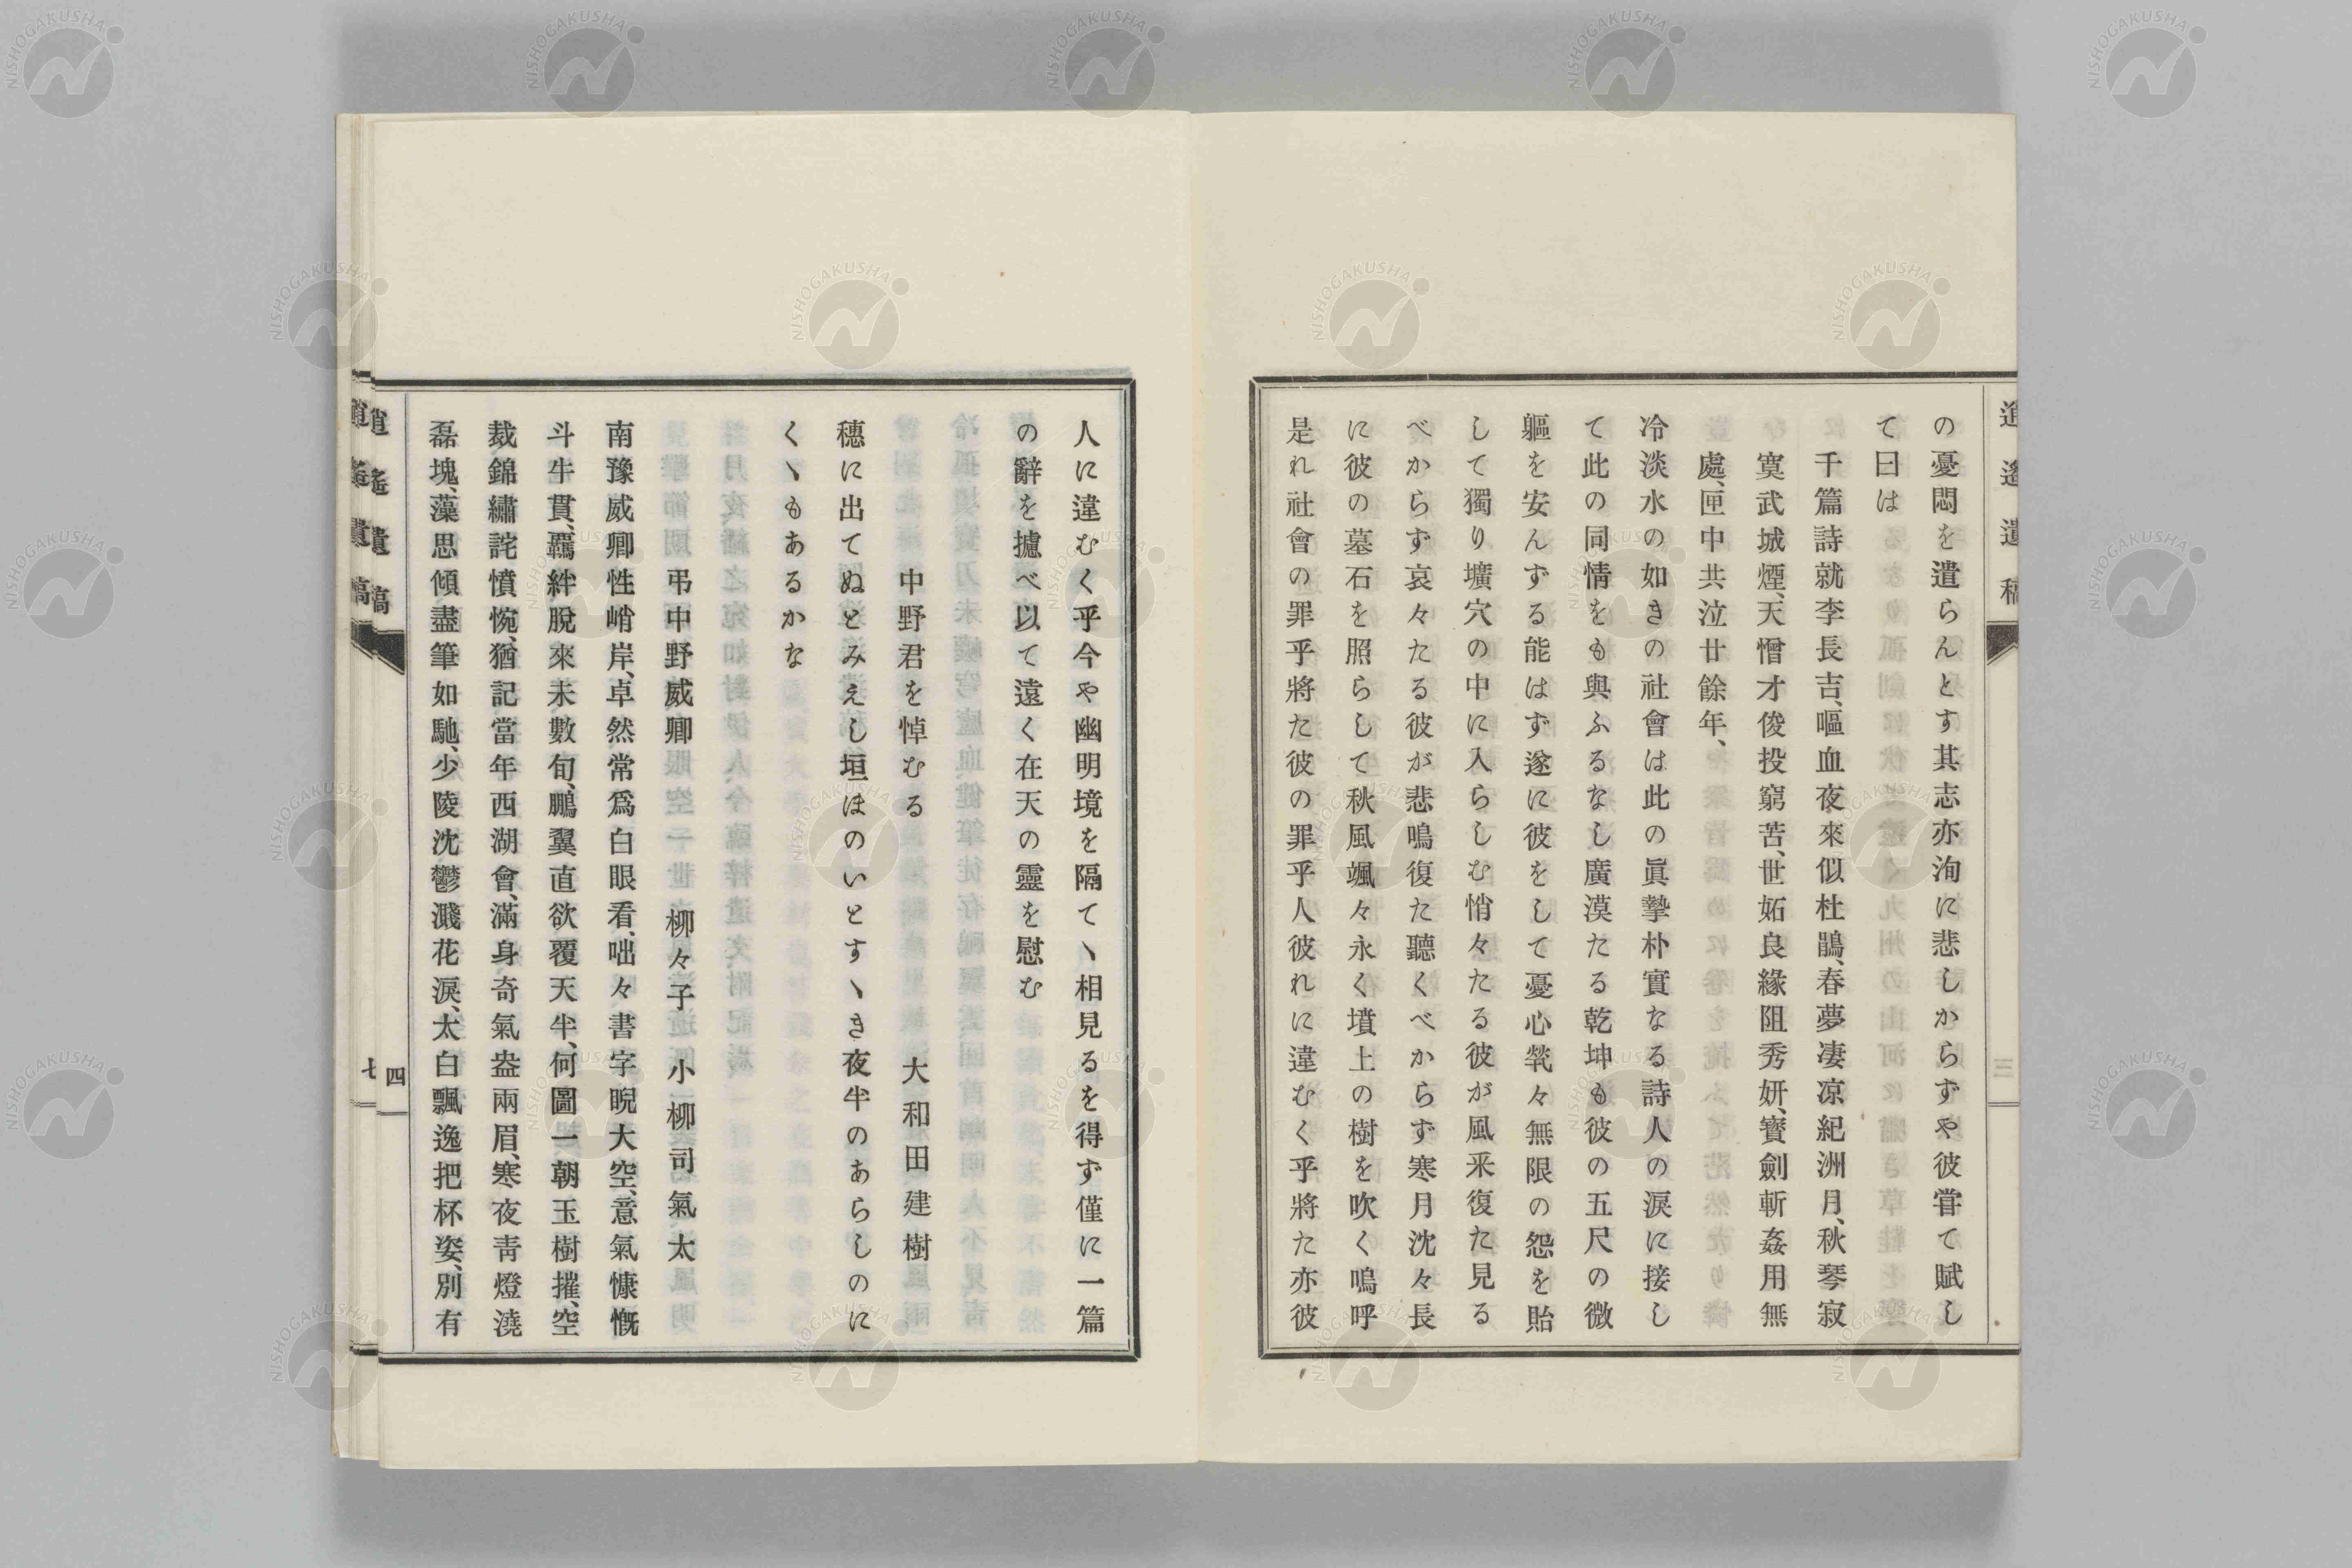 逍遙遺稿
三
の憂悶を遣らんとす其志亦洵に悲しからずや彼甞て賦し
て曰は
千篇詩就李長吉、嘔血夜來似杜鵑、春夢凄凉紀洲月、秋琴寂
寞武城煙、天憎才俊投窮苦、世妬良緣阻秀妍、寳劍斬姦用無
處、匣中共泣廿餘年、
冷淡水の如きの社會は此の眞摯朴實なる詩人の淚に接し
て此の同情をも與ふるなし廣漠たる乾坤も彼の五尺の微
軀を安んずる能はず遂に彼をして憂心煢々無限の怨を貽
して獨り壙穴の中に入らしむ悄々たる彼が風采復た見る
べからず哀々たる彼が悲鳴復た聽くべからず寒月沈々長
に彼の墓石を照らして秋風颯々永く墳上の樹を吹く嗚呼
是れ社會の罪乎將た彼の罪乎人彼れに違むく乎將た亦彼
人に違むく乎今や幽明境を隔てヽ相見るを得ず僅に一篇
の辭を攄べ以て遠く在天の靈を慰む
中野君を悼むる 大和田建樹
穗に出てぬとみえし垣ほのいとすヽき夜半のあらしのに
くヽもあるかな
弔中野威卿 柳々子 小柳司氣太
南豫威卿性峭岸、卓然常爲白眼看、咄々書字睨大空、意氣慷慨
斗牛貫、羈絆脫來未數旬、鵬翼直欲覆天半、何圖一朝玉樹摧、空
裁錦繡詫憤惋、猶記當年西湖會、滿身奇氣盎兩眉、寒夜靑燈澆
磊塊、藻思傾盡筆如馳、少陵沈鬱濺花淚、太白飄逸把杯姿、別有
逍遙遺稿
四
逍遙遺稿
七